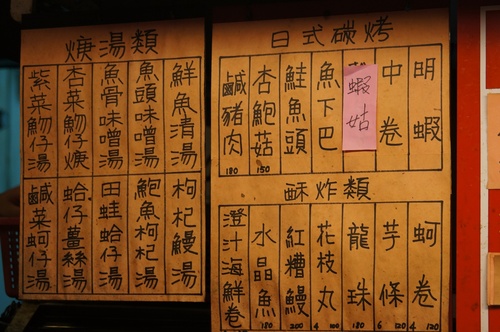 焿湯類
鮮魚清湯
魚頭味噌湯
魚骨味噌湯
杏菜魩仔焿
紫菜魩仔湯
枸杞鰻湯
鮑魚枸杞湯
田蛙蛤仔湯
蛤仔薑絲湯
鹹菜蚵仔湯
日式碳烤
明蝦
中卷
蝦姑
魚下巴
鮭魚頭
杏鮑菇 150
鹹豬肉 180
酥炸類
蚵卷 4 120
芋條 6 120
龍珠 180
花枝丸 4 100
紅糟鰻 200
水晶魚 180
澄汁海鮮卷